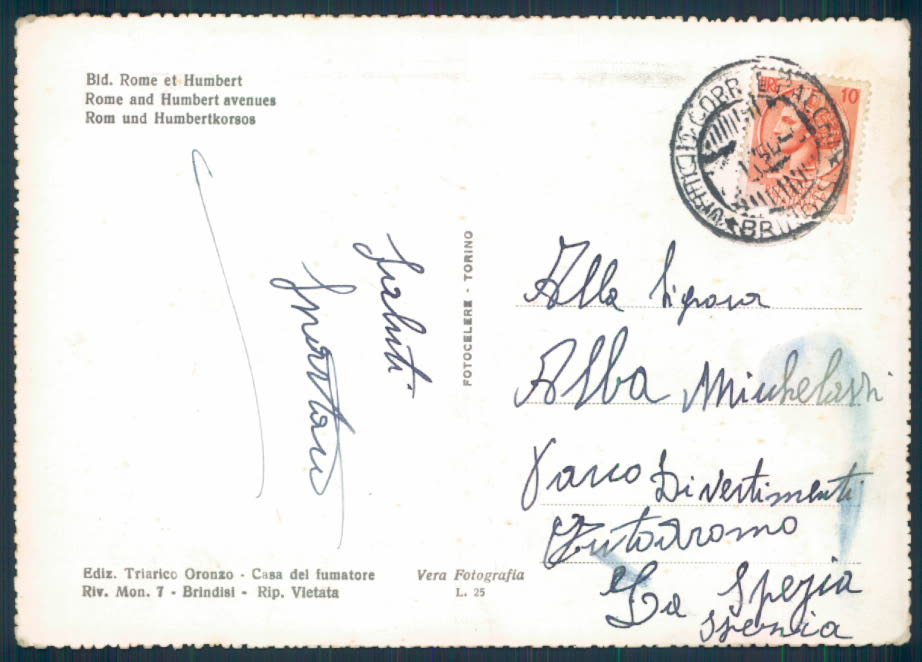 Bld. Rome et Humbert
Rome and Humbert avenues
Rom und Humbertkorsos
Saluti
FOTOCELERE - TORINO
LIRE 10
Alla Signora
Alba Michelassi
Parco Divertimenti
Autodromo
La Spezia
Spezia
Ediz. Triarico Oronzo - Casa del fumatore
Riv. Mon. 7 - Brindisi - Rip. Vietata
Vera Fotografia
L. 25